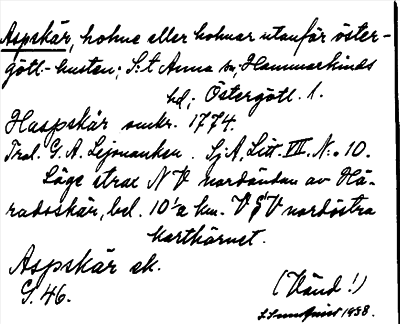 Aspskär, holme eller holmar utanför öster-
götl.-kusten; S:t Anna sn; Hammarkinds
hd; Östergötl. l.
Haspskär omkr. 1774.
Trol. G. A. Lejonanker. Sj.A, Litt. VII, N:o 10.
Läge strax NV nordändan av Hä-
radsskär, bel. 10 1/2 km. VSV nordöstra
karthörnet.
Aspskär ek.
G. 46.
(Vänd!)
1938.